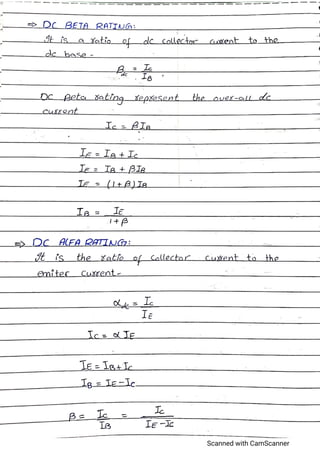 ⇒ DC BETA RATING:
It is a ratio of dc collector current to the
dc base -
βdc = Ic / IB
DC Beta rating represent the over-all dc
current
Ic = βIB
IE = IB + Ic
IE = IB + βIB
IE = (1+β)IB
IB = IE / 1+β
⇒ DC ALFA RATING:
It is the ratio of collector current to the
emiter current -
αdc = Ic / IE
Ic = α IE
IE = IB + Ic
IB = IE - Ic
β = Ic / IB = Ic / IE - Ic
Scanned with CamScanner